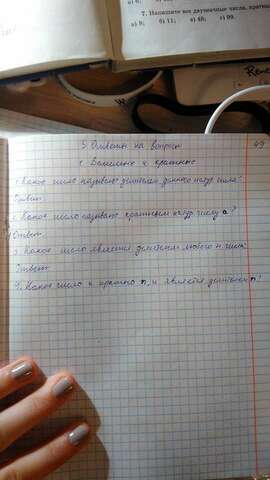 7. Напишите все двузначные числа, кратные
а) 8; б) 11; в) 48; г) 99.
§ Ответы на вопросы
1. Делители и кратные
1. Какое число называю делителем данного натур числа?
Ответ
2. Какое число называю кратным натур числу а?
Ответ
3. Какое число является делителем любого н числа
Ответ
4. Какое число и кратно n, и является делителем n?
49